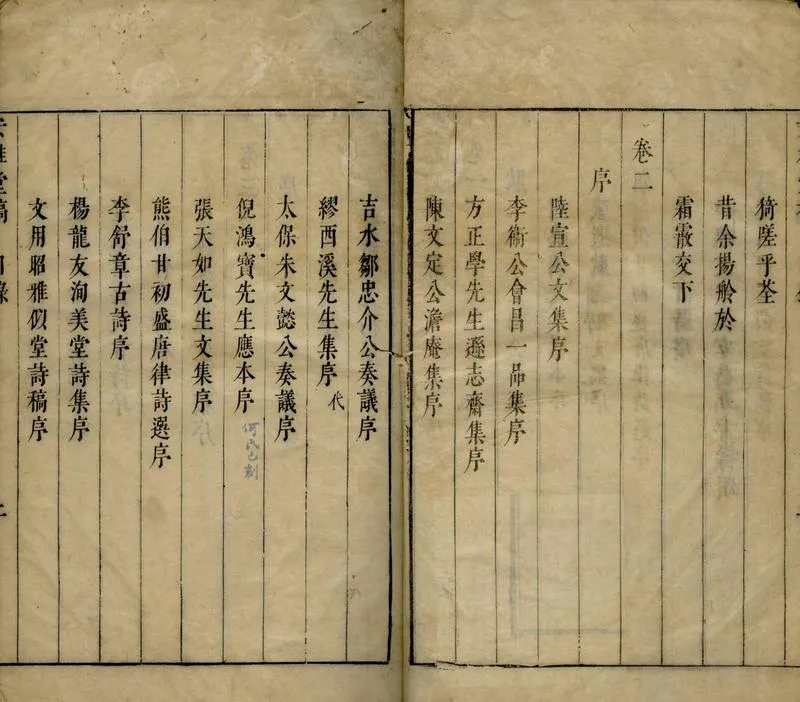 猗嗟乎荃
昔余揚舲於
霜霰交下
卷二
序
陸宣公文集序
李衞公會昌一品集序
方正學先生遜志齋集序
陳文定公澹庵集序
吉水鄒忠介公奏議序
繆西溪先生集序 代
太保朱文懿公奏議序
倪鴻寶先生應本序 何氏已刻
張天如先生文集序
熊伯甘初盛唐律詩選序
李舒章古詩序
楊龍友洵美堂詩集序
文用昭雅似堂詩稿序
堂稿 目錄 二